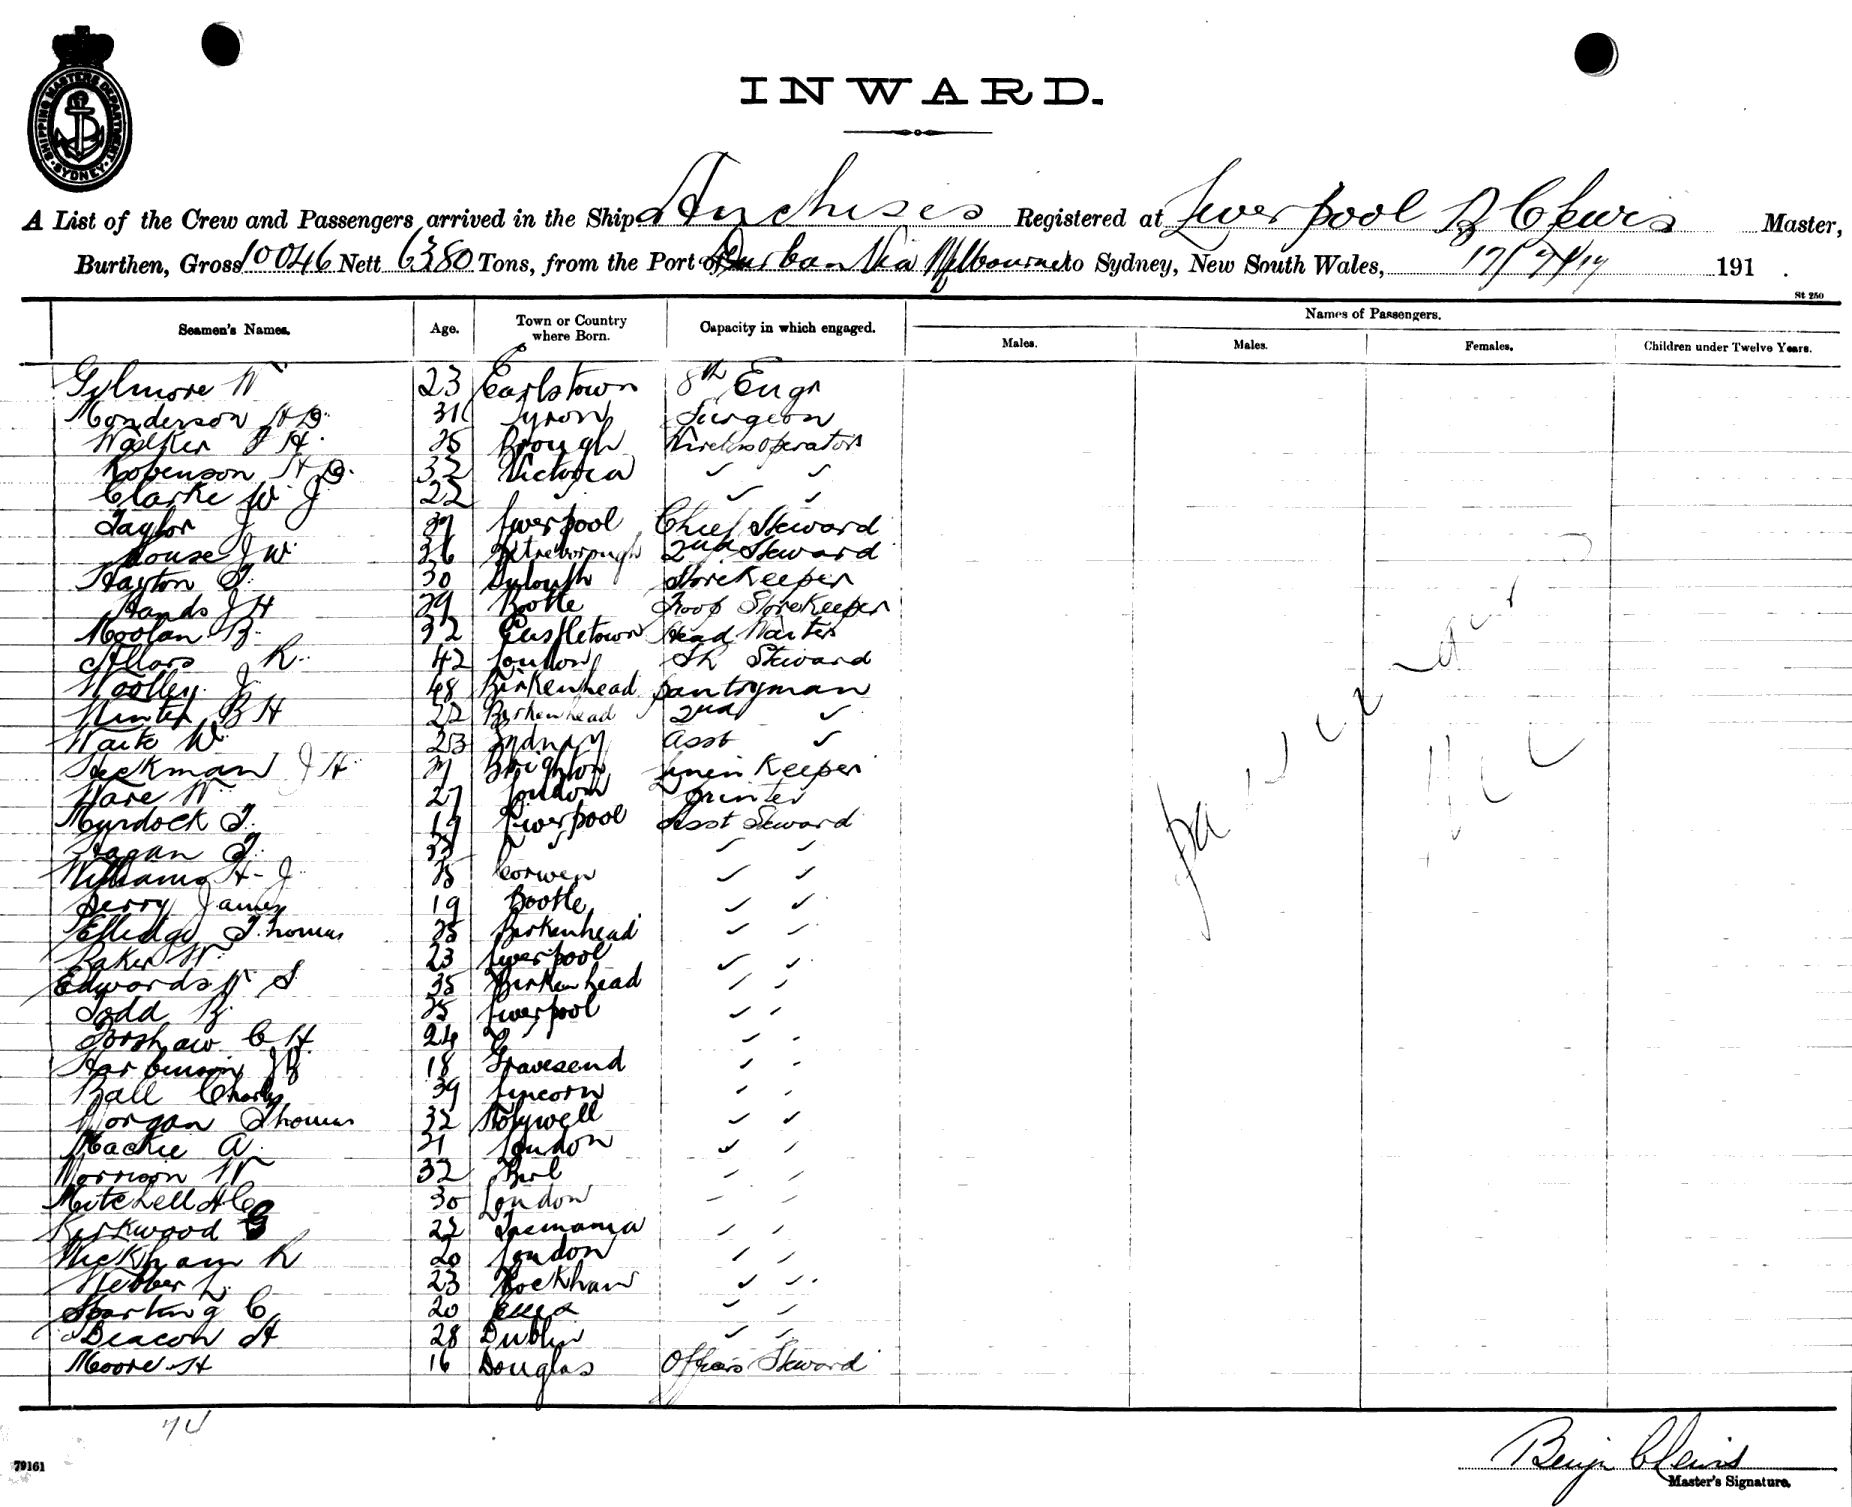 SHIPPING MASTERS DEPARTMENT SYDNEY
INWARD.
A List of the Crew and Passengers arrived in the Ship Anchises Registered at Liverpool B C Lewis Master,
Burthen, Gross 10046 Nett 6380 Tons, from the Port of Durban Via Melbourne to Sydney, New South Wales, 191 .
St 250
Seamen's Names. Age. Town or Country where Born. Capacity in which engaged. Names of Passengers.
Males. Males. Females. Children under Twelve Years.
Gilmore W 23 Earlstown 8th Engr
Monderson H D 31 Tyron Surgeon
Walker J H 25 Brough Wireless operator
Robenson H D 32 Victoria ✓ ✓
Clarke W J 22 ✓ ✓ ✓
Taylor J Liverpool Chief Steward
Rouse J W 36 Peterborough 2nd Steward
Hayton T 30 Storekeeper
Hands J H 29 Bootle Troop Storekeeper
Moolan B 32 Castletown Head Waiter
Sellars R 42 London SR Steward
Woolley J 48 Birkenhead pantryman
Winter B H 22 Birkenhead 2nd ✓
Waite W 23 Sydney Asst ✓
Heckman J H Brighton Linen Keeper
Ware W 27 London Printer
Murdock T 19 Liverpool Asst Steward
Hagan T ✓ ✓ ✓
Williams H J 25 Corwen ✓ ✓
Perry James 19 Bootle ✓ ✓
Elledge Thomas 25 Birkenhead ✓ ✓
Baker W 23 Liverpool ✓ ✓
Edwards W S 35 Birkenhead ✓ ✓
Todd B 25 Liverpool ✓ ✓
Forshaw C H 24 ✓ ✓ ✓
Harbinson J B 18 Gravesend ✓ ✓
Ball Charles 39 ✓ ✓
Morgan Thomas 32 Holywell ✓ ✓
Mackie A 21 London ✓ ✓
Morrison W 32 ✓ ✓
Mitchell H C 30 London ✓ ✓
Kirkwood G 22 Tasmania ✓ ✓
Wickham R 20 London ✓ ✓
Webber L 23 Rockham ✓ ✓
Sparling C 20 ✓ ✓
Deacon H 28 Dublin ✓ ✓
Moore H 16 Douglas Officers Steward
79161
Benjn C Lewis
Master's Signature.